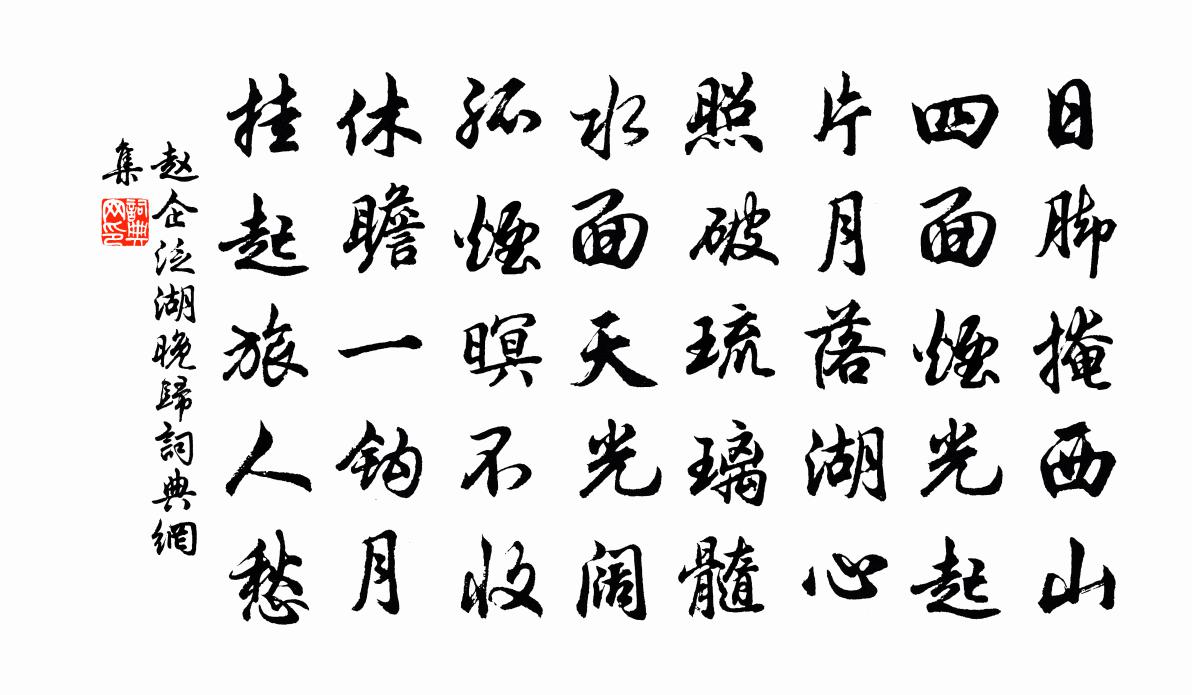 日脚掩西山
四面煙光起
片月落湖心
照破琉璃髓
水面天光阔
孤煙暝不收
休瞻一钩月
挂起旅人愁
赵企泛湖晚歸詞典網
集
詞典
网印